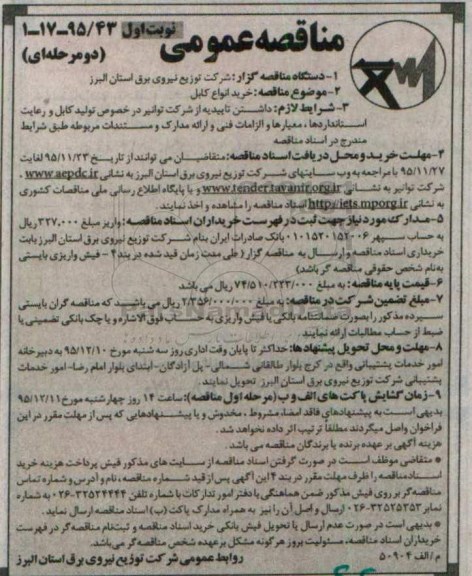 مناقصه عمومی
نوبت اول ۹۵/۴۳-۱۷-۱
(دو مرحله‌ای)
۱- دستگاه مناقصه گزار: شرکت توزیع نیروی برق استان البرز
۲-موضوع مناقصه: خرید انواع کابل
۳- شرایط لازم: داشتن تاییدیه از شرکت توانیر در خصوص تولید کابل و رعایت
استانداردها، معیارها و الزامات فنی و ارائه مدارک و مستندات مربوطه طبق شرایط
مندرج در اسناد مناقصه
۴-مهلت خرید و محل دریافت اسناد مناقصه: متقاضیان می توانند از تاریخ ۹۵/۱۱/۲۳ لغایت
۹۵/۱۱/۲۷ با مراجعه به وب سایتهای شرکت توزیع نیروی برق استان البرز به نشانی www.aepdc.ir ،
شرکت توانیر به نشانی www.tender.tavanir.org.ir و یا پایگاه اطلاع رسانی ملی مناقصات کشوری
به نشانی http://iets.mporg.ir اسناد مناقصه را مشاهده و اخذ نمایند.
۵-مدارک مورد نیاز جهت ثبت در فهرست خریداران اسناد مناقصه: واریز مبلغ ۳۲۷,۰۰۰ ریال
به حساب سپهر ۰۱۰۱۵۲۰۱۵۲۰۰۶ بانک صادرات ایران بنام شرکت توزیع نیروی برق استان البرز بابت
خریداری اسناد مناقصه و ارسال به مناقصه گزار (طی مدت زمان قید شده در بند ۴ - فیش واریزی بایستی
به نام شخص حقوقی مناقصه گر باشد)
۶-قیمت پایه مناقصه: به مبلغ ۷۴/۵۱۰/۳۲۳/۰۰۰ ریال می باشد
۷-مبلغ تضمین شرکت در مناقصه: به مبلغ ۲/۳۵۶/۰۰۰/۰۰۰ ریال می باشد که مناقصه گران بایستی
سپرده مذکور را بصورت ضمانتنامه بانکی یا فیش واریزی به حساب فوق الاشاره و یا چک بانکی تضمینی یا
ضبط از حساب مطالبات ارائه نمایند
۸-مهلت و محل تحویل پیشنهادها: حداکثر تا پایان وقت اداری روز سه شنبه مورخ ۹۵/۱۲/۱۰ به دبیرخانه
امور خدمات پشتیبانی واقع در کرج بلوار طالقانی شمالی- پل آزادگان- ابتدای بلوار امام رضا- امور خدمات
پشتیبانی شرکت توزیع نیروی برق استان البرز تحویل نمایند.
۹-زمان گشایش پاکت های الف و ب (مرحله اول مناقصه): ساعت ۱۴ روز چهارشنبه مورخ ۹۵/۱۲/۱۱
بدیهی است به پیشنهادهای فاقد امضا، مشروط، مخدوش و یا پیشنهادهایی که پس از مهلت مقرر در این
فراخوان واصل میگردند مطلقا ترتیب اثر داده نخواهد شد.
هزینه آگهی بر عهده برنده یا برندگان مناقصه می باشد.
* متقاضی موظف است در صورت گرفتن اسناد مناقصه از سایت های مذکور فیش پرداخت هزینه خرید
اسناد مناقصه را ظرف مهلت مقرر در بند ۴ این آگهی پس از قید شماره مناقصه، نام و آدرس و شماره تماس
مناقصه گر بر روی فیش مذکور ضمن هماهنگی با دفتر امور تدارکات با شماره تلفن ۳۲۵۲۴۴۴۴-۰۲۶ به شماره
نمابر ۳۲۵۲۵۲۵۲-۰۲۶ ارسال و اصل آن را نیز به همراه مدارک پاکت (ب) اسناد مناقصه ارسال نماید.
* بدیهی است در صورت عدم ارسال یا تحویل فیش بانکی خرید اسناد مناقصه و ثبت نام مناقصه گر در فهرست
خریداران اسناد مناقصه، مسئولیت بروز هرگونه مشکل بر عهده شخص مناقصه گر می باشد.
روابط عمومی شرکت توزیع نیروی برق استان البرز
م/الف ۵۰۹۰۴